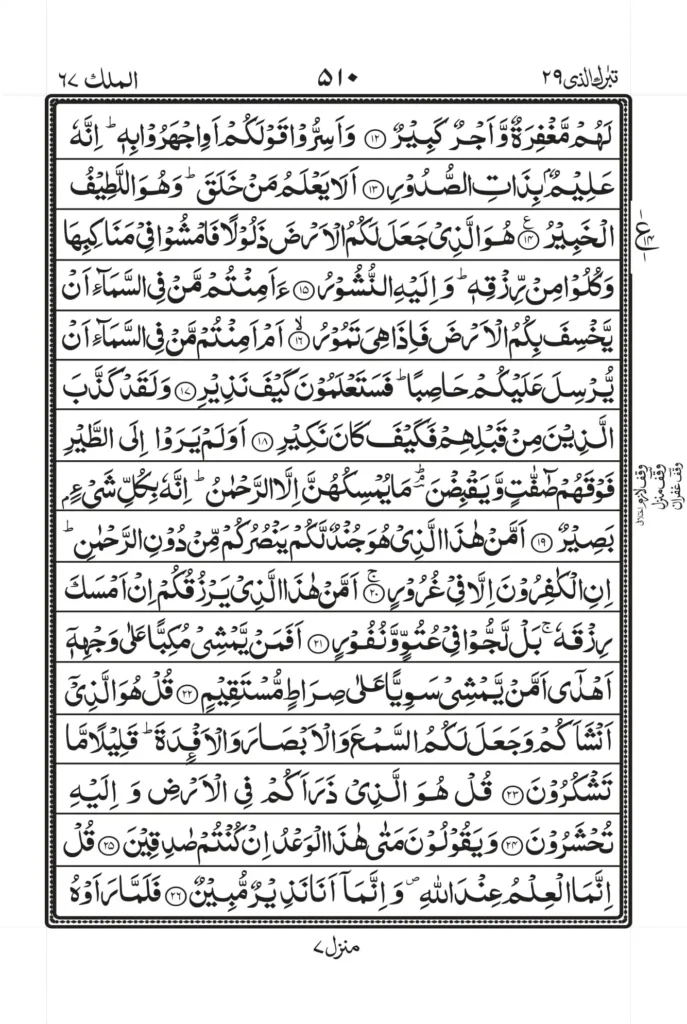 تبٰرك الذى ٢٩
٥١٠
الملك ٦٧
لَهُمْ مَّغْفِرَةٌ وَّاَجْرٌ كَبِيْرٌ ﴿١٢﴾ وَاَسِرُّوْا قَوْلَكُمْ اَوِاجْهَرُوْا بِهٖ ؕ اِنَّهٗ
عَلِيْمٌۢ بِذَاتِ الصُّدُوْرِ ﴿١٣﴾ اَلَا يَعْلَمُ مَنْ خَلَقَ ؕ وَهُوَ اللَّطِيْفُ
الْخَبِيْرُ ﴿١٤﴾ هُوَ الَّذِيْ جَعَلَ لَكُمُ الْاَرْضَ ذَلُوْلًا فَامْشُوْا فِيْ مَنَاكِبِهَا
وَكُلُوْا مِنْ رِّزْقِهٖ ؕ وَاِلَيْهِ النُّشُوْرُ ﴿١٥﴾ ءَاَمِنْتُمْ مَّنْ فِي السَّمَآءِ اَنْ
يَّخْسِفَ بِكُمُ الْاَرْضَ فَاِذَا هِيَ تَمُوْرُ ﴿١٦﴾ اَمْ اَمِنْتُمْ مَّنْ فِي السَّمَآءِ اَنْ
يُّرْسِلَ عَلَيْكُمْ حَاصِبًا ؕ فَسَتَعْلَمُوْنَ كَيْفَ نَذِيْرِ ﴿١٧﴾ وَلَقَدْ كَذَّبَ
الَّذِيْنَ مِنْ قَبْلِهِمْ فَكَيْفَ كَانَ نَكِيْرِ ﴿١٨﴾ اَوَلَمْ يَرَوْا اِلَى الطَّيْرِ
فَوْقَهُمْ صٰٓفّٰتٍ وَّيَقْبِضْنَ ؔۘ مَا يُمْسِكُهُنَّ اِلَّا الرَّحْمٰنُ ؕ اِنَّهٗ بِكُلِّ شَيْءٍۢ
بَصِيْرٌ ﴿١٩﴾ اَمَّنْ هٰذَا الَّذِيْ هُوَ جُنْدٌ لَّكُمْ يَنْصُرُكُمْ مِّنْ دُوْنِ الرَّحْمٰنِ ؕ
اِنِ الْكٰفِرُوْنَ اِلَّا فِيْ غُرُوْرٍ ﴿٢٠﴾ۚ اَمَّنْ هٰذَا الَّذِيْ يَرْزُقُكُمْ اِنْ اَمْسَكَ
رِزْقَهٗ ۚ بَلْ لَّجُّوْا فِيْ عُتُوٍّ وَّنُفُوْرٍ ﴿٢١﴾ اَفَمَنْ يَّمْشِيْ مُكِبًّا عَلٰى وَجْهِهٖٓ
اَهْدٰٓى اَمَّنْ يَّمْشِيْ سَوِيًّا عَلٰى صِرَاطٍ مُّسْتَقِيْمٍ ﴿٢٢﴾ قُلْ هُوَ الَّذِيْٓ
اَنْشَاَكُمْ وَجَعَلَ لَكُمُ السَّمْعَ وَالْاَبْصَارَ وَالْاَفْـِٕدَةَ ؕ قَلِيْلًا مَّا
تَشْكُرُوْنَ ﴿٢٣﴾ قُلْ هُوَ الَّذِيْ ذَرَاَكُمْ فِي الْاَرْضِ وَاِلَيْهِ
تُحْشَرُوْنَ ﴿٢٤﴾ وَيَقُوْلُوْنَ مَتٰى هٰذَا الْوَعْدُ اِنْ كُنْتُمْ صٰدِقِيْنَ ﴿٢٥﴾ قُلْ
اِنَّمَا الْعِلْمُ عِنْدَ اللّٰهِ ۪ وَاِنَّمَآ اَنَا نَذِيْرٌ مُّبِيْنٌ ﴿٢٦﴾ فَلَمَّا رَاَوْهُ
ع ١٤
وقف لازم
وقف منزل
وقف غفران
منزل ٧